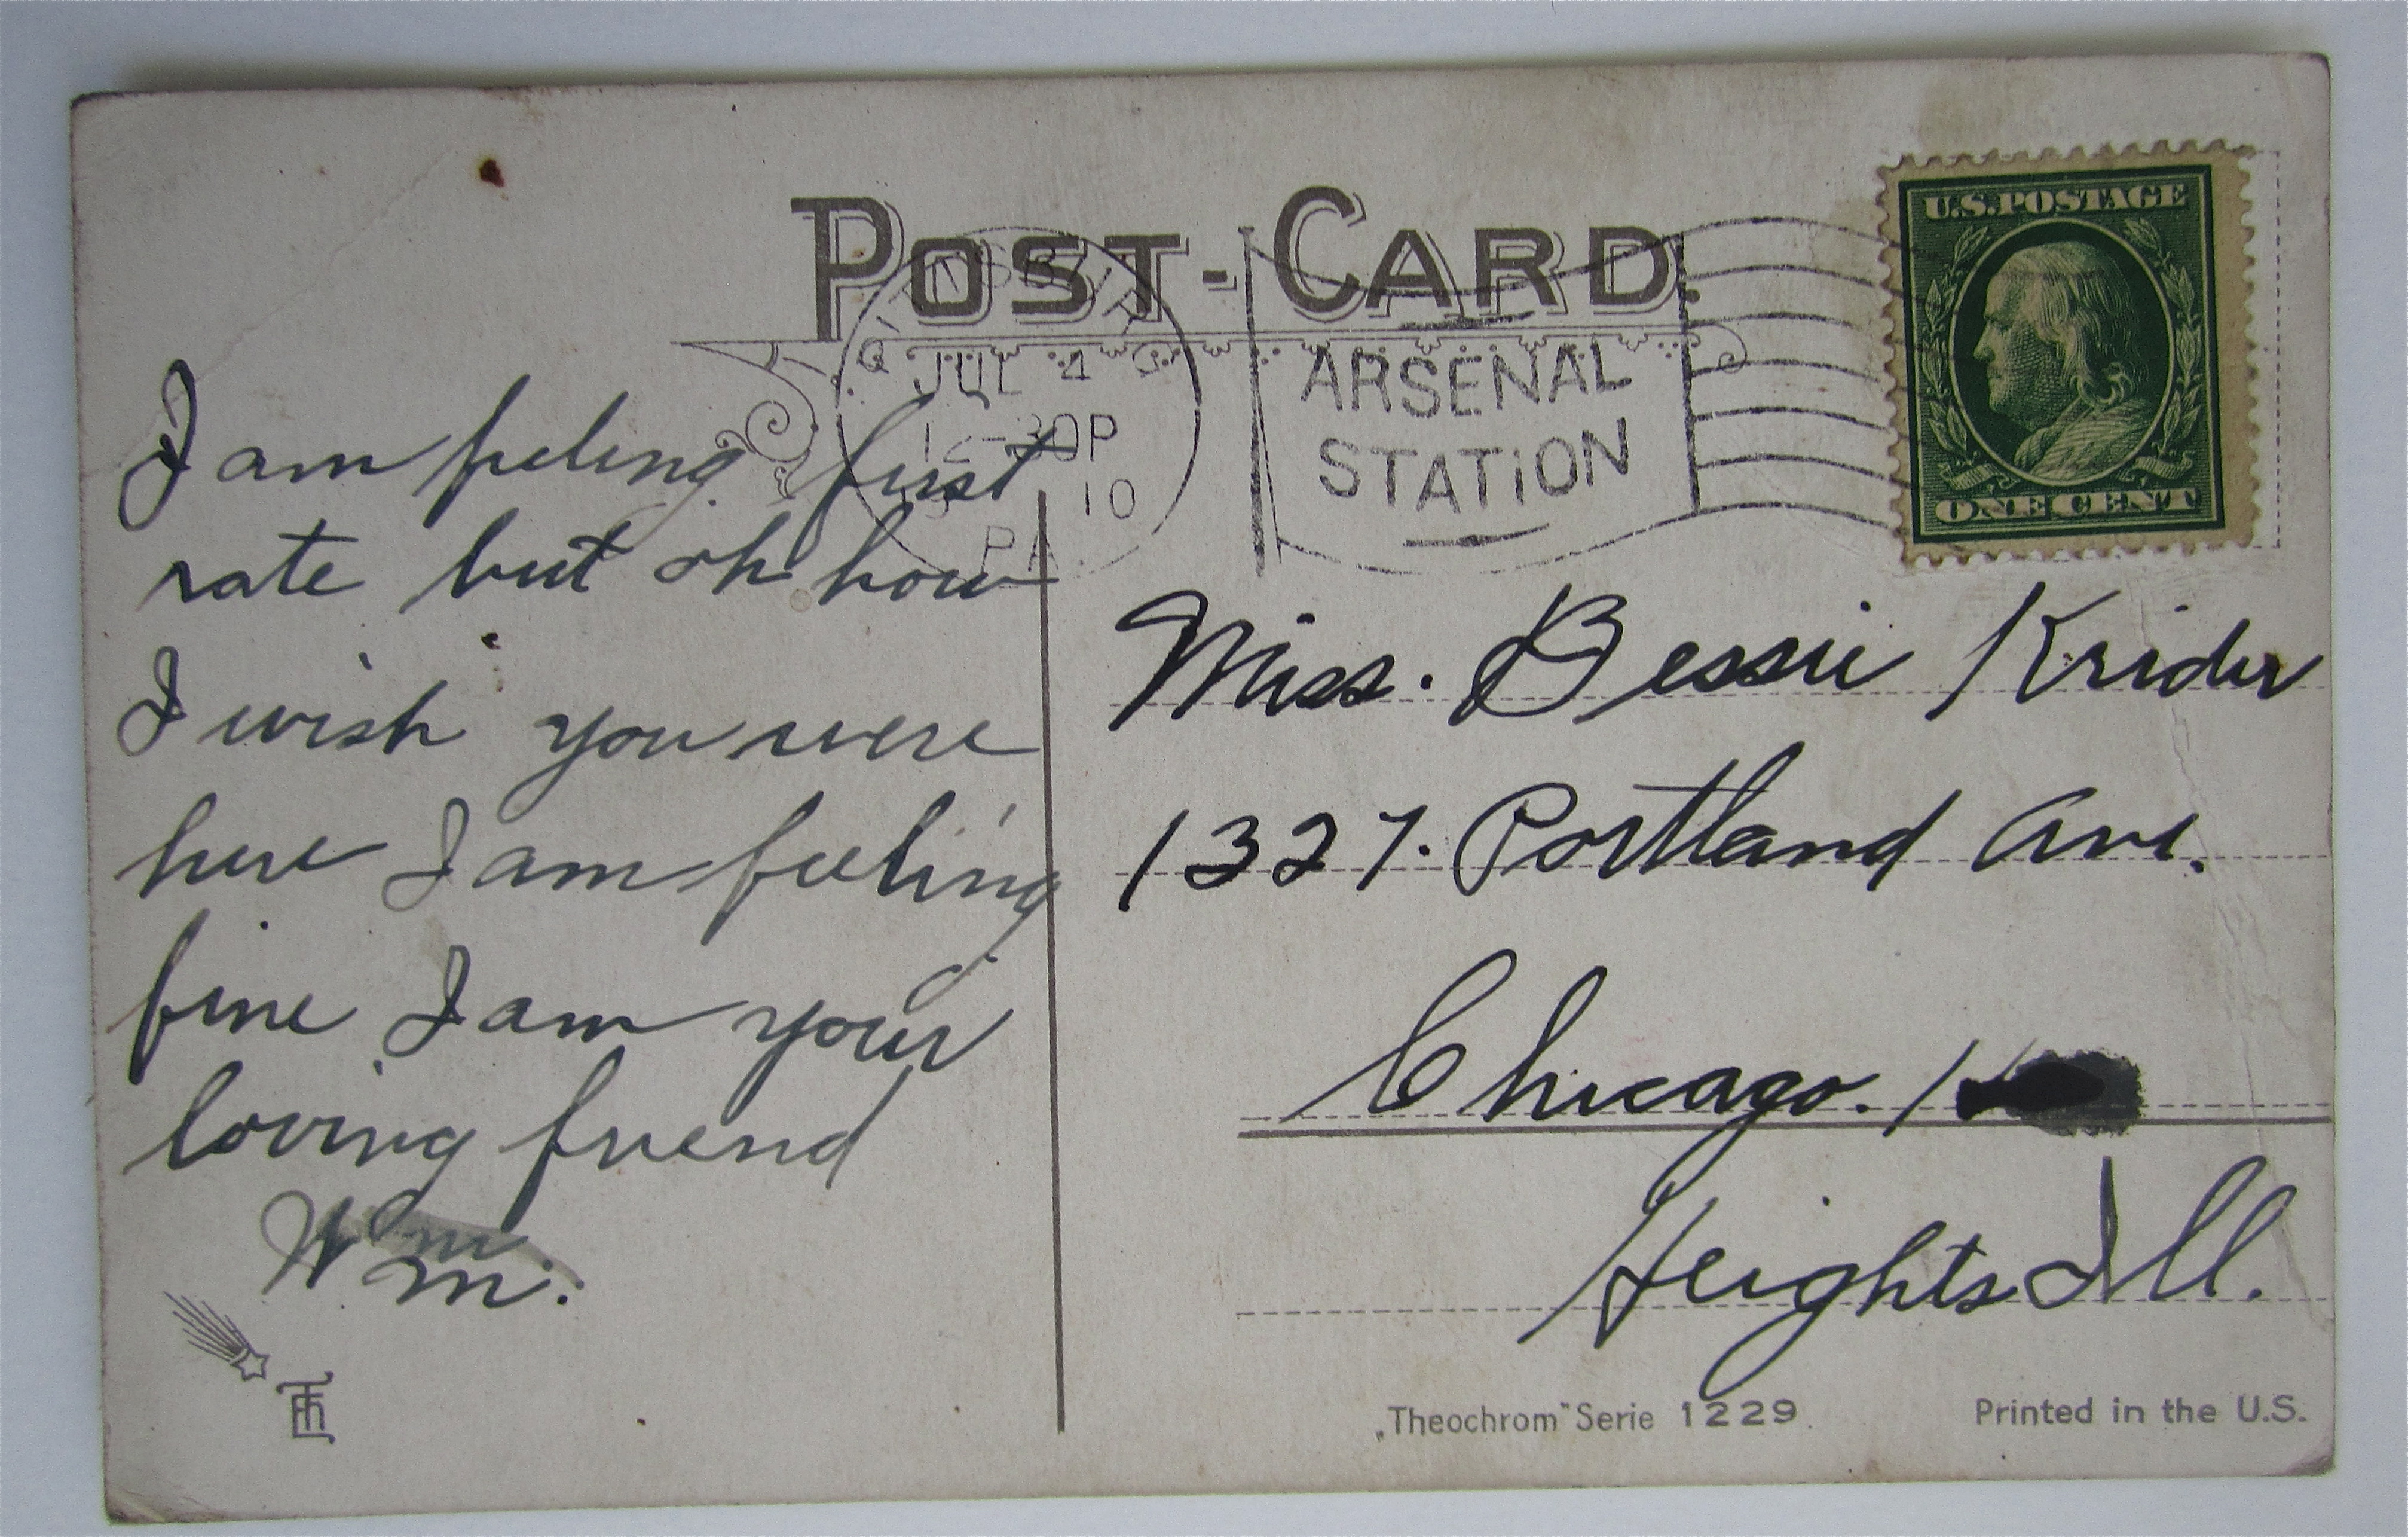 POST-CARD.
U.S.POSTAGE
ONE CENT
JUL 4
30P
10
PA.
ARSENAL
STATION
I am feeling first
rate but oh how
I wish you were
here I am feeling
fine I am your
loving friend
Wm.
Miss. Bessie Krider
1327. Portland Ave.
Chicago.
Heights Ill.
„Theochrom" Serie 1229.
Printed in the U.S.